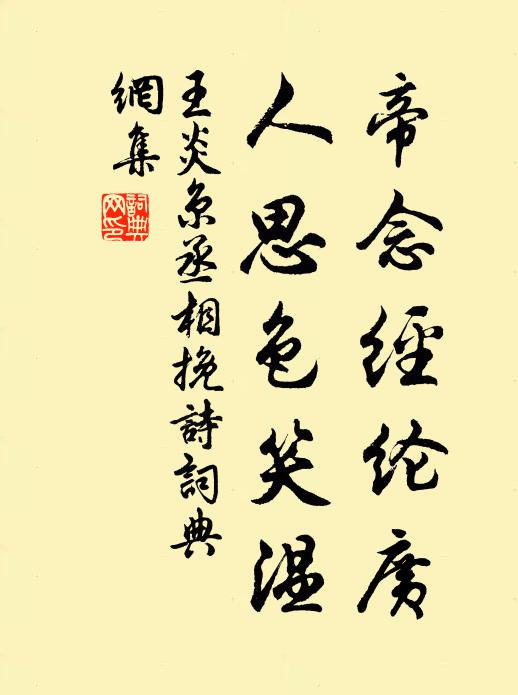 帝念經纶廣
人思色笑温
王炎京丞相挽詩詞典
網集
詞典
网印